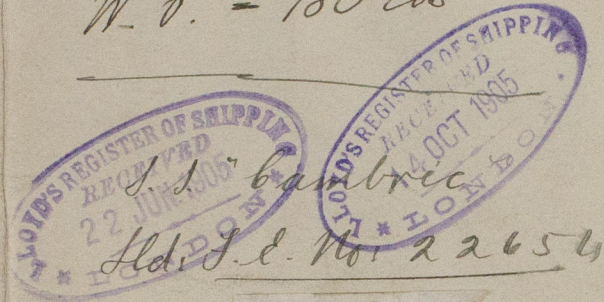 LLOYD'S REGISTER OF SHIPPING
RECEIVED
22 JUN 1905
LONDON
LLOYD'S REGISTER OF SHIPPING
RECEIVED
14 OCT 1905
LONDON
S.S. "Cambric
S.E. No: 22654